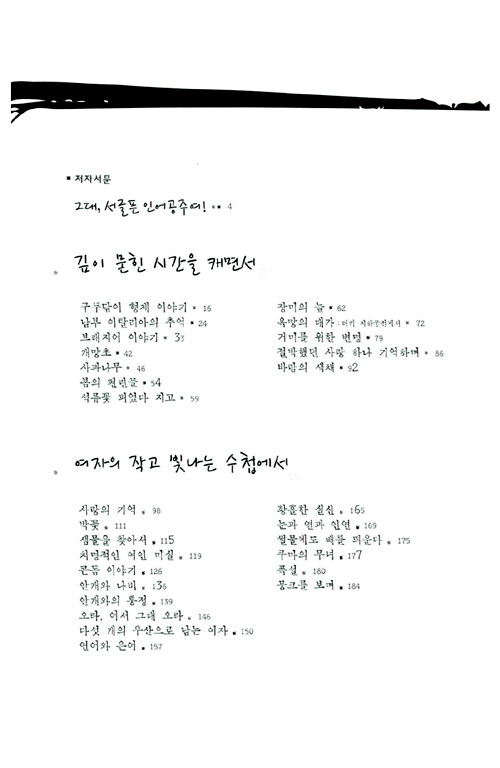 ■ 저자서문
그대, 서글픈 인어공주여! ▪▪ 4
깊이 묻힌 시간을 캐면서
구두닦이 형제 이야기 ▪ 16
남부 이탈리아의 추억 ▪ 24
브래지어 이야기 ▪ 33
개망초 ▪ 42
사과나무 ▪ 46
봄의 편린들 ▪ 54
석류꽃 피었다 지고 ▪ 59
장미의 늪 ▪ 62
욕망의 대가 : 터키 지하궁전에서 ▪ 72
거미를 위한 변명 ▪ 79
절박했던 사랑 하나 기억하며 ▪ 86
바람의 색채 ▪ 92
여자의 작고 빛나는 수첩에서
사랑의 기억 ▪ 98
박꽃 ▪ 111
샘물을 찾아서 ▪ 115
치명적인 여인 미실 ▪ 119
콘돔 이야기 ▪ 126
안개와 나비 ▪ 136
안개와의 통정 ▪ 139
오라, 어서 그대 오라 ▪ 146
다섯 개의 우산으로 남는 여자 ▪ 150
연어와 은어 ▪ 157
황홀한 실신 ▪ 165
눈과 연과 인연 ▪ 169
썰물에도 배를 띄운다 ▪ 175
쿠마의 무녀 ▪ 177
폭설 ▪ 180
뭉크를 보며 ▪ 184